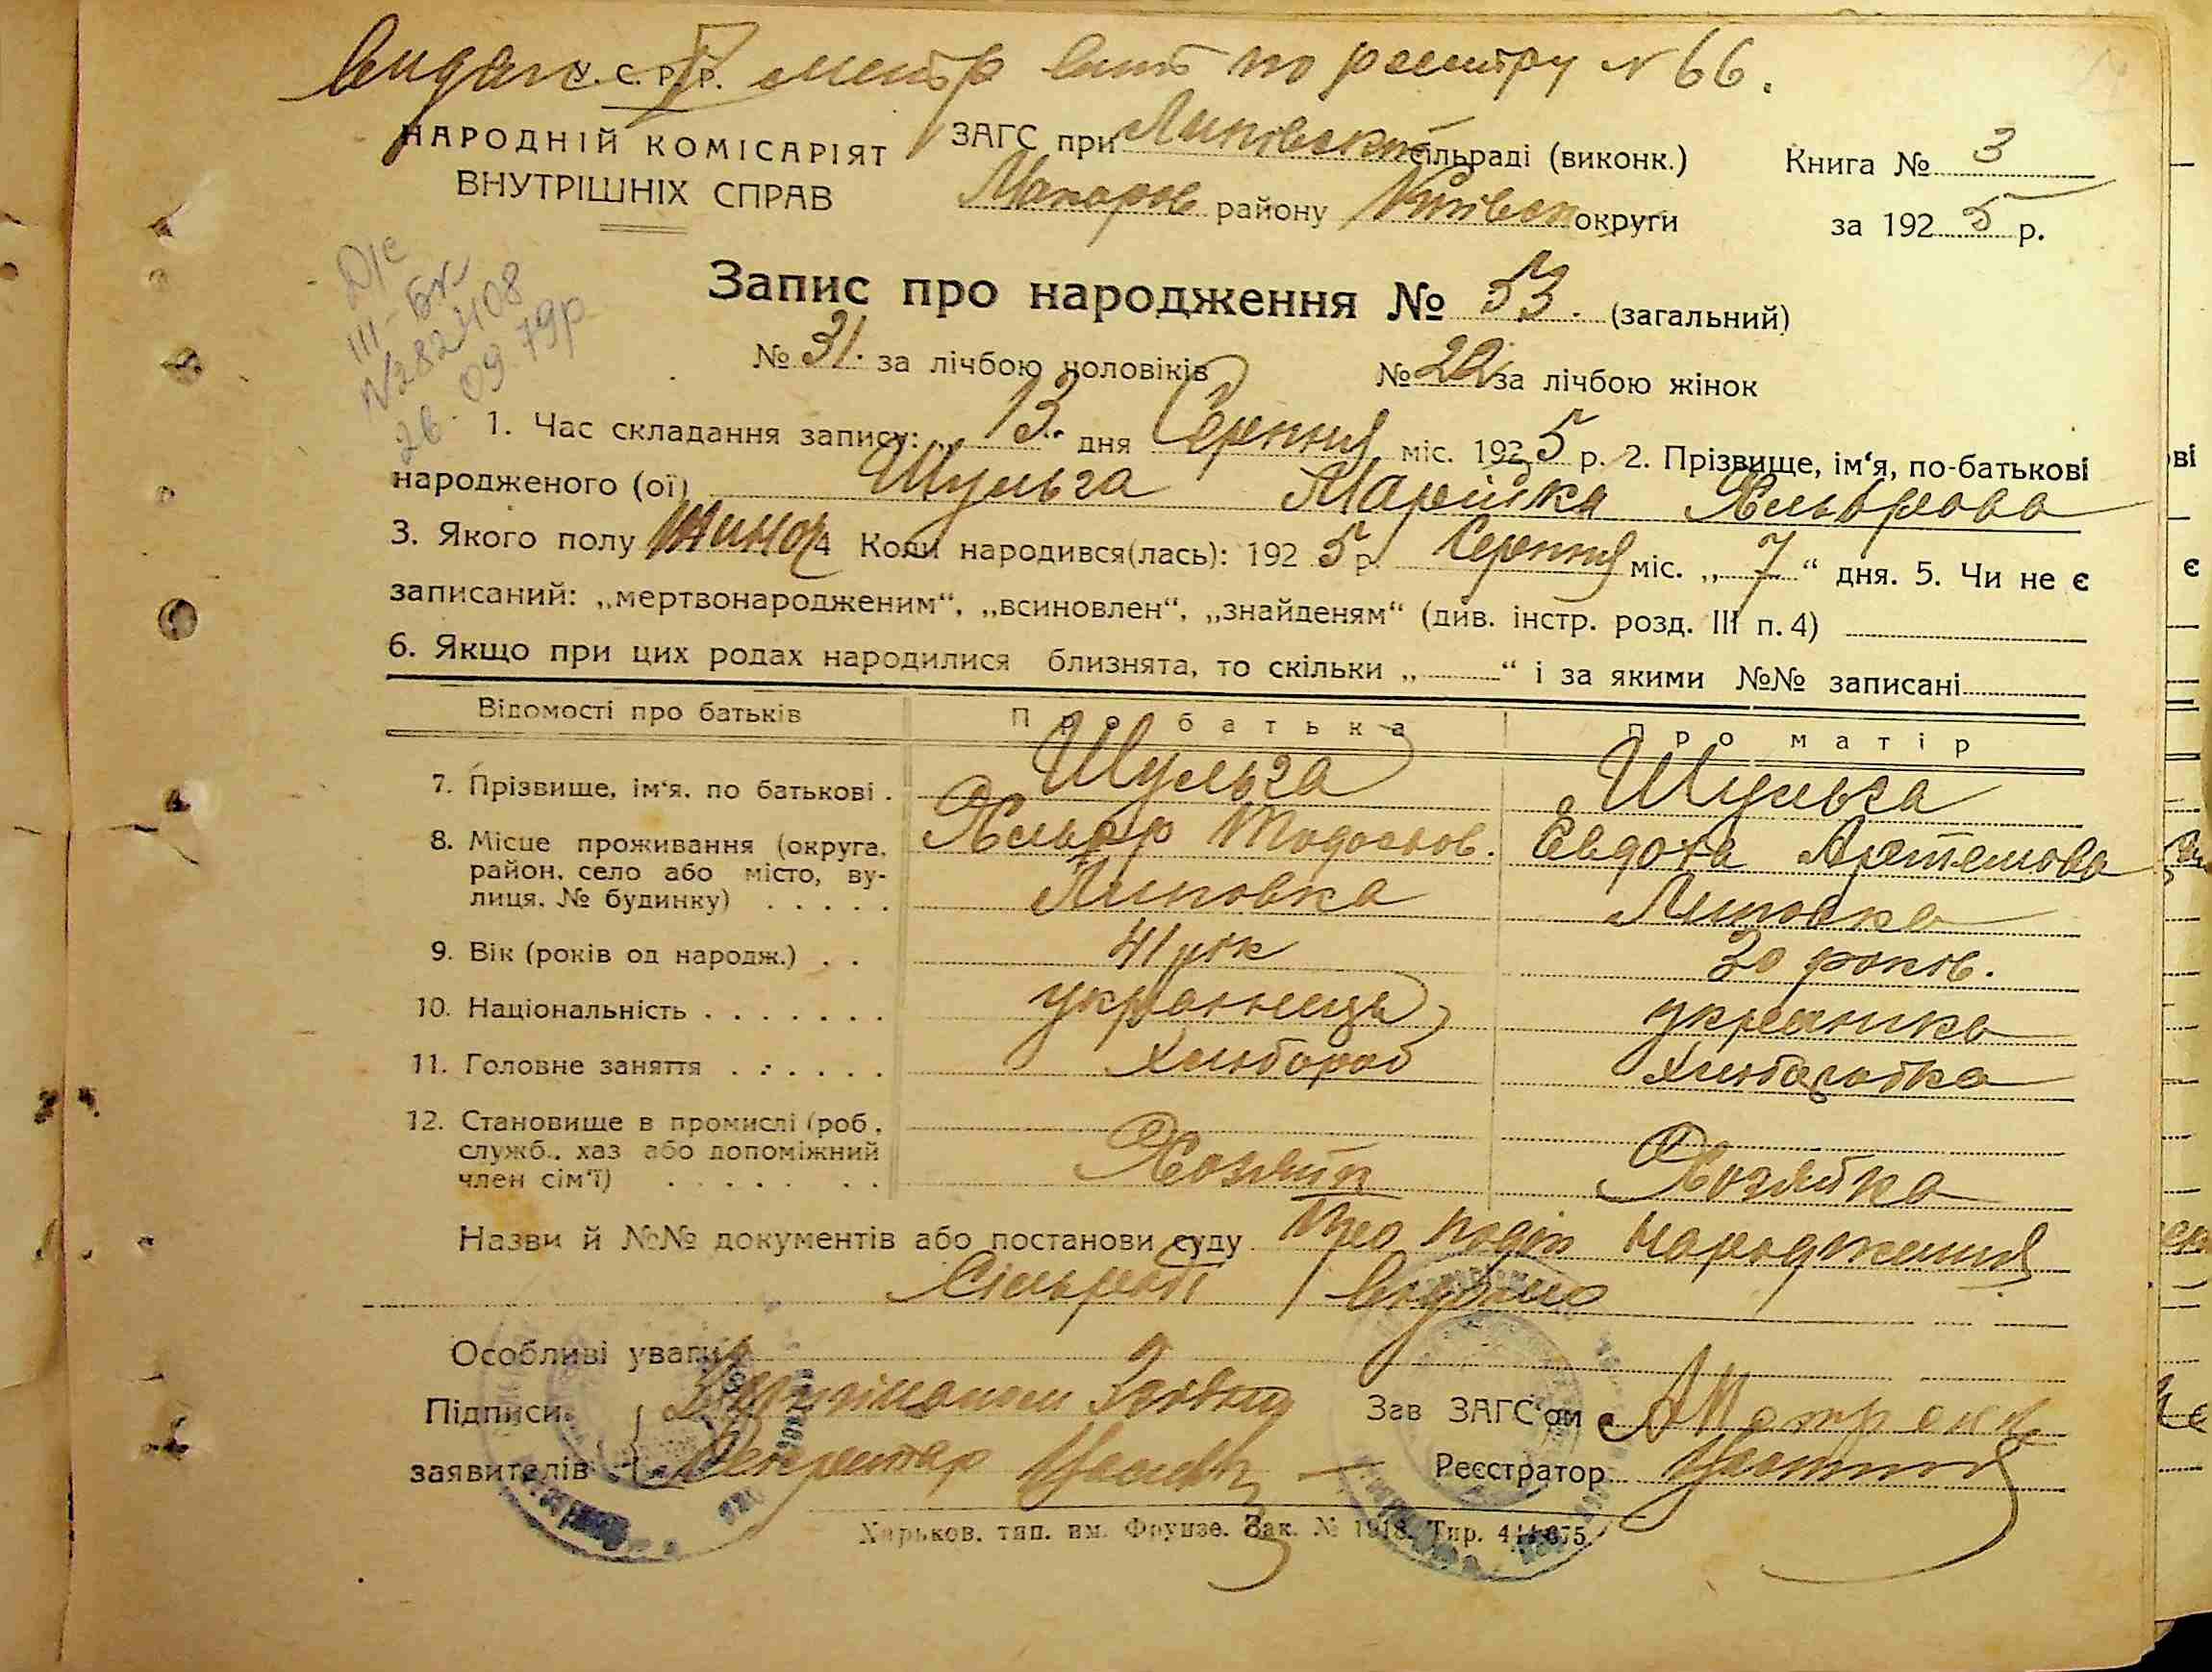 Видан метр вит по реєстру № 66.
У. С. Р. Р.
НАРОДНІЙ КОМІСАРІЯТ
ВНУТРІШНІХ СПРАВ
ЗАГС при Липівській сільраді (виконк.)
Макарів району Київськ округи
Книга № 3
за 1925 р.
Запис про народження № 53. (загальний)
№ 31. за лічбою чоловіків № 22 за лічбою жінок
ІІІ-БК
26.09.79р
1. Час складання запису: „ 13 " дня Серпня міс. 1925 р. 2. Прізвище, ім'я, по-батькові
народженого (ої) Шульга Марійка
3. Якого полу Жіноч 4 Коли народився(лась): 1925 р. Серпня міс. „ 7 " дня. 5. Чи не є
записаний: „мертвонародженим", „всиновлен", „знайденям" (див. інстр. розд. III п. 4)
6. Якщо при цих родах народилися близнята, то скільки „ " і за якими №№ записані
Відомості про батьків Про батька Про матір
7. Прізвище, ім'я, по батькові . Шульга Шульга
8. Місце проживання (округа, Тодосьов. Евдоха Артемова
район, село або місто, ву-
лиця, № будинку) . . . . . Липовка Липовка
9. Вік (років од народж.) . . 41 рік 30 років.
10. Національність . . . . . . . українець українка
11. Головне заняття . . . . . . Хлібороб Хліборобка
12. Становище в промислі (роб.,
служб., хаз або допоміжний
член сім'ї) . . . . . . . Хозяїн Хозяйка
Назви й №№ документів або постанови суду Про подію народження
Сільраді видано
Особливі уваги
Підписи
заявителів Секретар
Зав ЗАГС'ом
Реєстратор
Харьков. тип. им. Фрунзе. Зак. № 1918. Тир. 444.675.